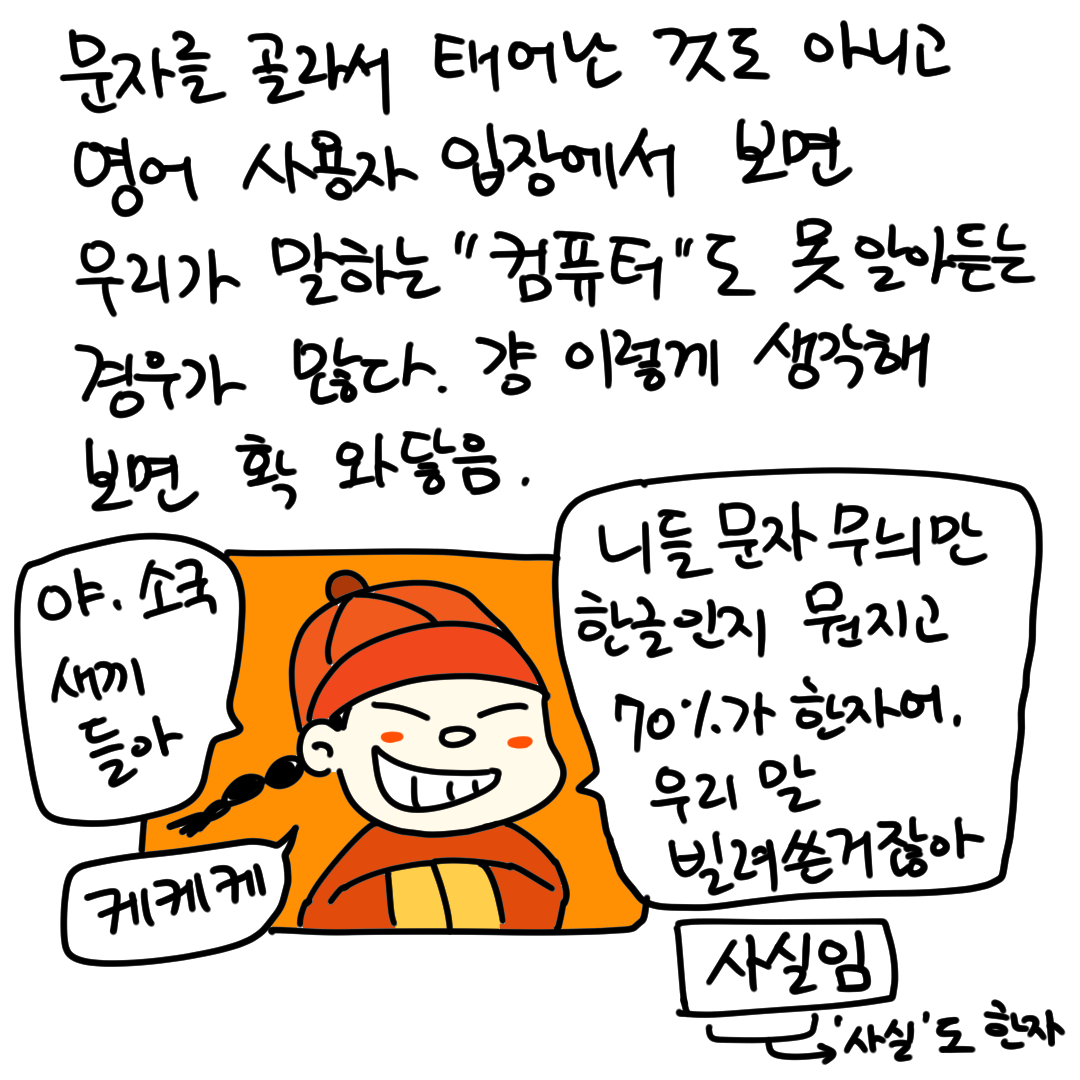 문자를 골라서 태어난 것도 아니고
영어 사용자 입장에서 보면
우리가 말하는 "컴퓨터"도 못 알아듣는
경우가 많다. 걍 이렇게 생각해
보면 확 와닿음.
야. 소국
새끼
들아
니들 문자 무늬만
한글인지 뭔지고
70%가 한자어.
우리 말
빌려쓴거잖아
케케케
사실임
'사실'도 한자